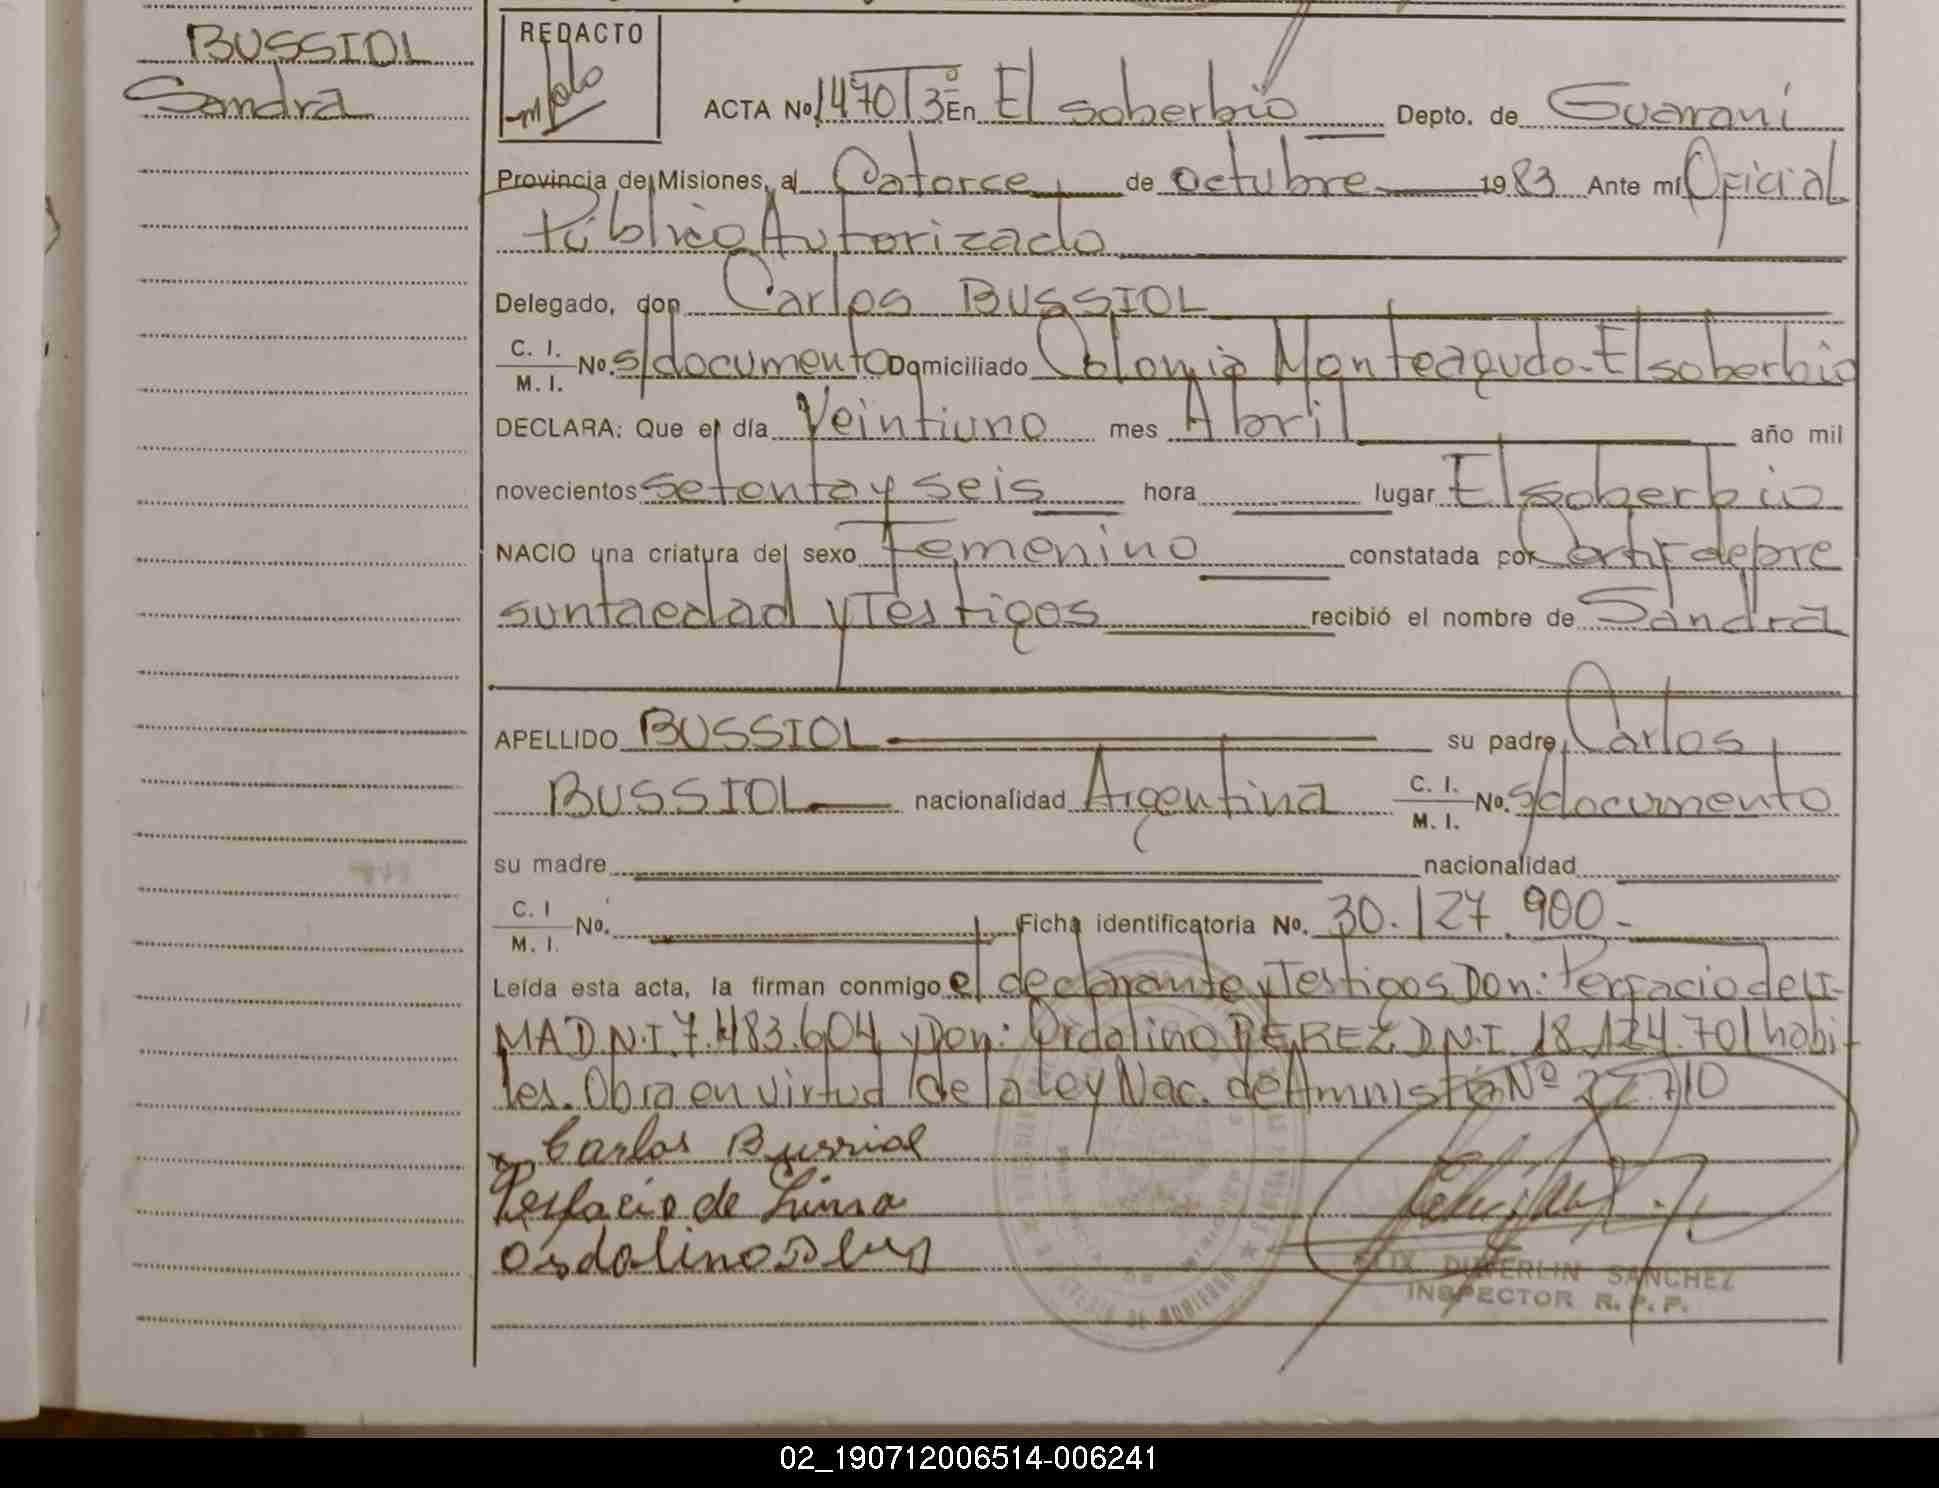 BUSSIOL
Sandra
REDACTO
ACTA No. 1470 T3º En El soberbio Depto. de Guaraní
Provincia de Misiones, al Catorce de octubre 1983 Ante mí Oficial
Público Autorizado
Delegado, don Carlos BUSSIOL
C. I.
M. I. No. s/documento Domiciliado Colonia Monteagudo-El soberbio
DECLARA: Que el día Veintiuno mes Abril año mil
novecientos setenta y seis hora lugar El soberbio
NACIO una criatura del sexo Femenino constatada por Certif de pre
sunta edad y Testigos recibió el nombre de Sandra
APELLIDO BUSSIOL su padre, Carlos
BUSSIOL nacionalidad Argentina C. I.
M. I. No. s/documento
su madre nacionalidad
C. I
M. I. No. Ficha identificatoria No. 30.127.900.-
Leída esta acta, la firman conmigo el declarante y Testigos Don: Perfacio de LI-
MA D.N.I. 7.483.604 y Don: Ordalino PEREZ D.N.I. 18.124.701 habi-
les. Obra en virtud de la Ley Nac. de Amnistia Nº 22.710
Carlos Bussiol
Perfacio de Lima
Ordalino
SANCHEZ
INSPECTOR R. P. P.
02_190712006514-006241